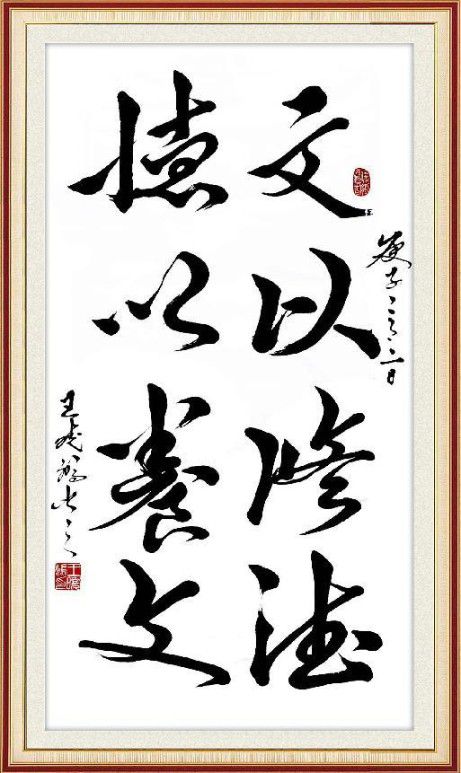 文以修德
庚子
德以養文